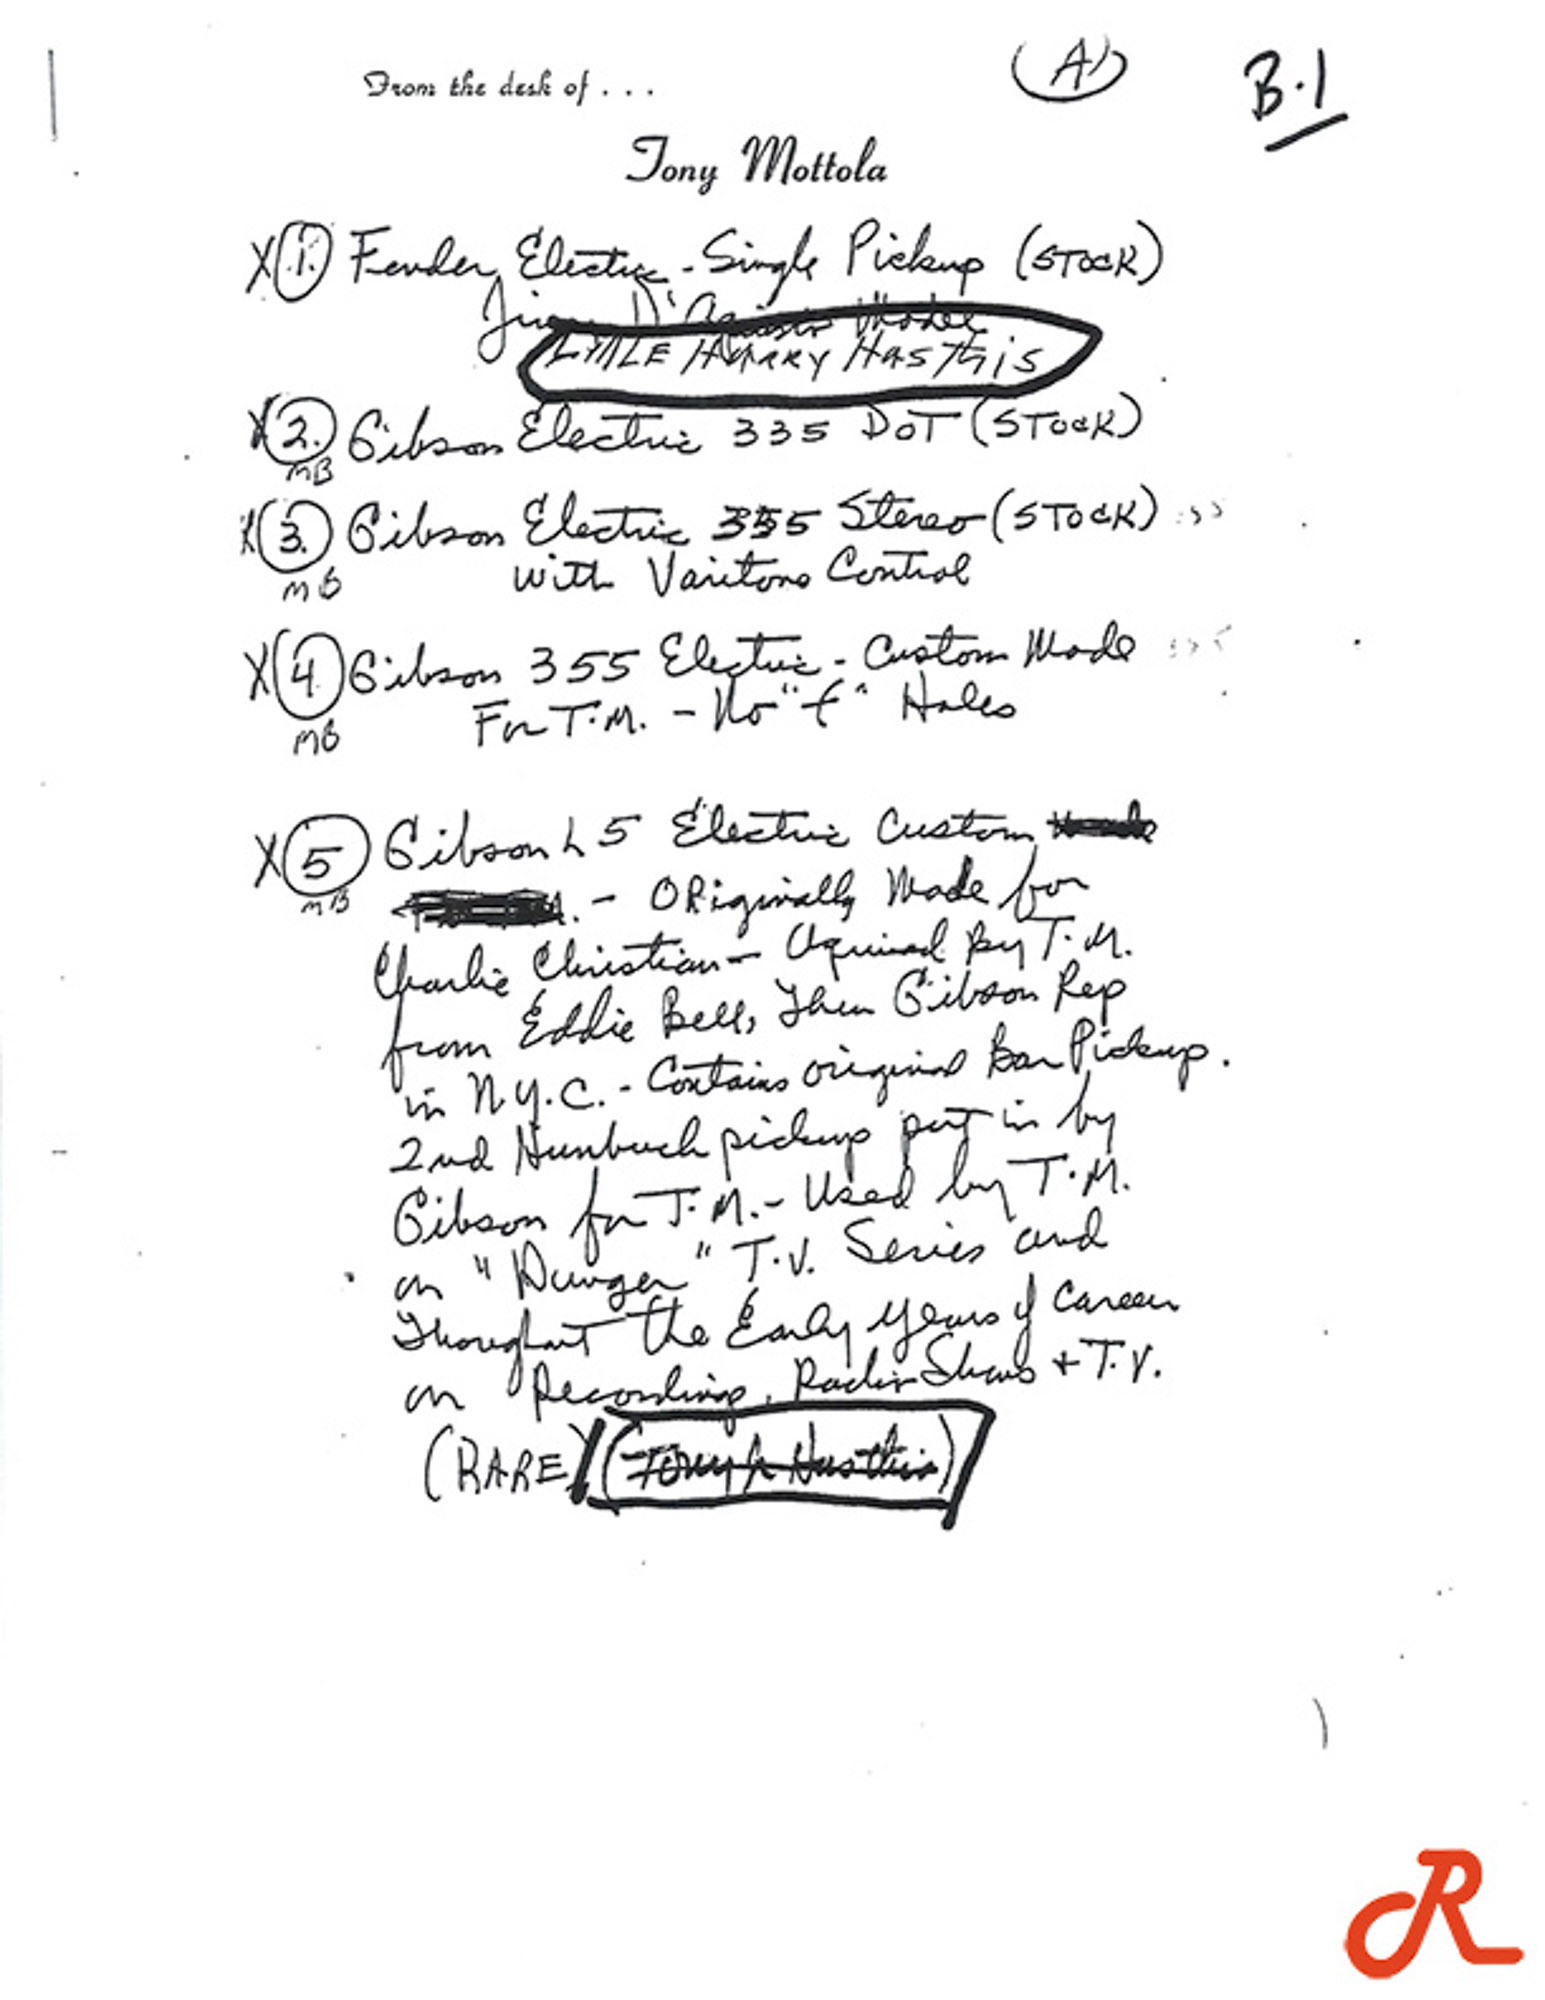 From the desk of . . .
A1
B.1
Tony Mottola
X 1. Fender Electric - Single Pickup (STOCK)
Jimmy D'Aquisto Model
LITTLE HARRY HAS THIS
X 2. Gibson Electric 335 DOT (STOCK)
MB
X 3. Gibson Electric 355 Stereo (STOCK)
with Varitone Control
MB
X 4 Gibson 355 Electric - Custom Made
For T.M. - No "f" Holes
MB
X 5 Gibson L5 Electric Custom
MB
- ORiginally Made for
Charlie Christian - Aquired By T.M.
from Eddie Bell, Then Gibson Rep
in N.Y.C. - Contains original Bar Pickup.
2nd Humbuck pickup put in by
Gibson for T.M. - Used by T.M.
on "Danger" T.V. Series and
Throughout the Early years of Career
on Recordings, Radio Shows + T.V.
(RARE) (Tony Jr Has this)
R